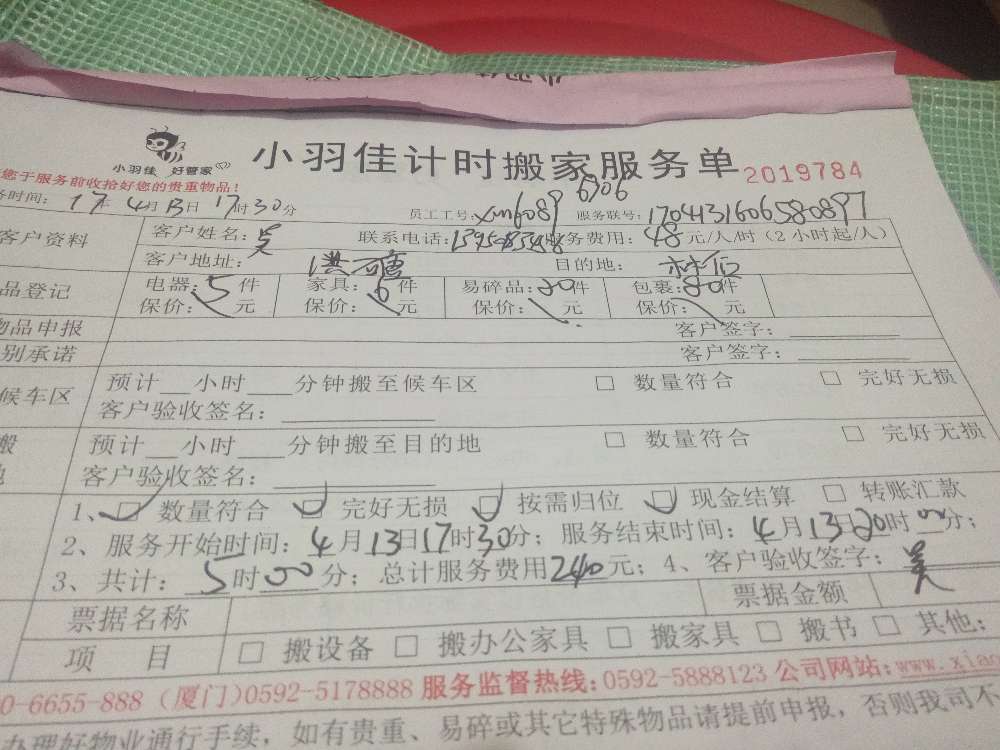 小羽佳 好管家
小羽佳计时搬家服务单 2019784
您于服务前收拾好您的贵重物品！
务时间：17年4月13日17时30分 员工工号：xm6089 6706 服务联号：1704131606580897
客户资料 客户姓名：吴 联系电话： 服务费用：48元/人/时（2小时起/人）
客户地址：洪塘 目的地：
品登记 电器：5件 家具：6件 易碎品：20件 包裹：20件
保价： 元 保价： 元 保价： 元 保价： 元
物品申报 客户签字：
别承诺 客户签字：
候车区 预计 小时 分钟搬至候车区 □ 数量符合 □ 完好无损
客户验收签名：
搬 预计 小时 分钟搬至目的地 □ 数量符合 □ 完好无损
地 客户验收签名：
1、☑ 数量符合 ☑ 完好无损 ☑ 按需归位 ☑ 现金结算 □ 转账汇款
2、服务开始时间：4月13日17时30分；服务结束时间：4月13日20时00分；
3、共计：5时00分；总计服务费用240元；4、客户验收签字：吴
票据名称 票据金额
项 目 □ 搬设备 □ 搬办公家具 □ 搬家具 □ 搬书 □ 其他：
0-6655-888（厦门）0592-5178888 服务监督热线：0592-5888123 公司网站：www.xiao
办理好物业通行手续，如有贵重、易碎或其它特殊物品请提前申报，否则我司不